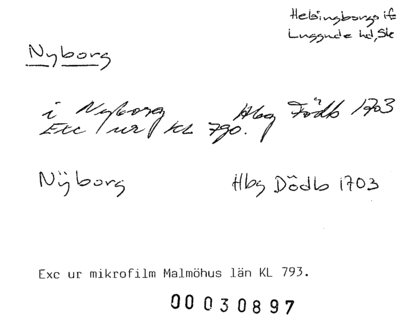 Helsingborgs if
Luggude hd, Sk
Nyborg
i Nyborg Hbg Födb 1703
Exc ur KL 790.
Nÿborg Hbg Dödb 1703
Exc ur mikrofilm Malmöhus län KL 793.
00 030897